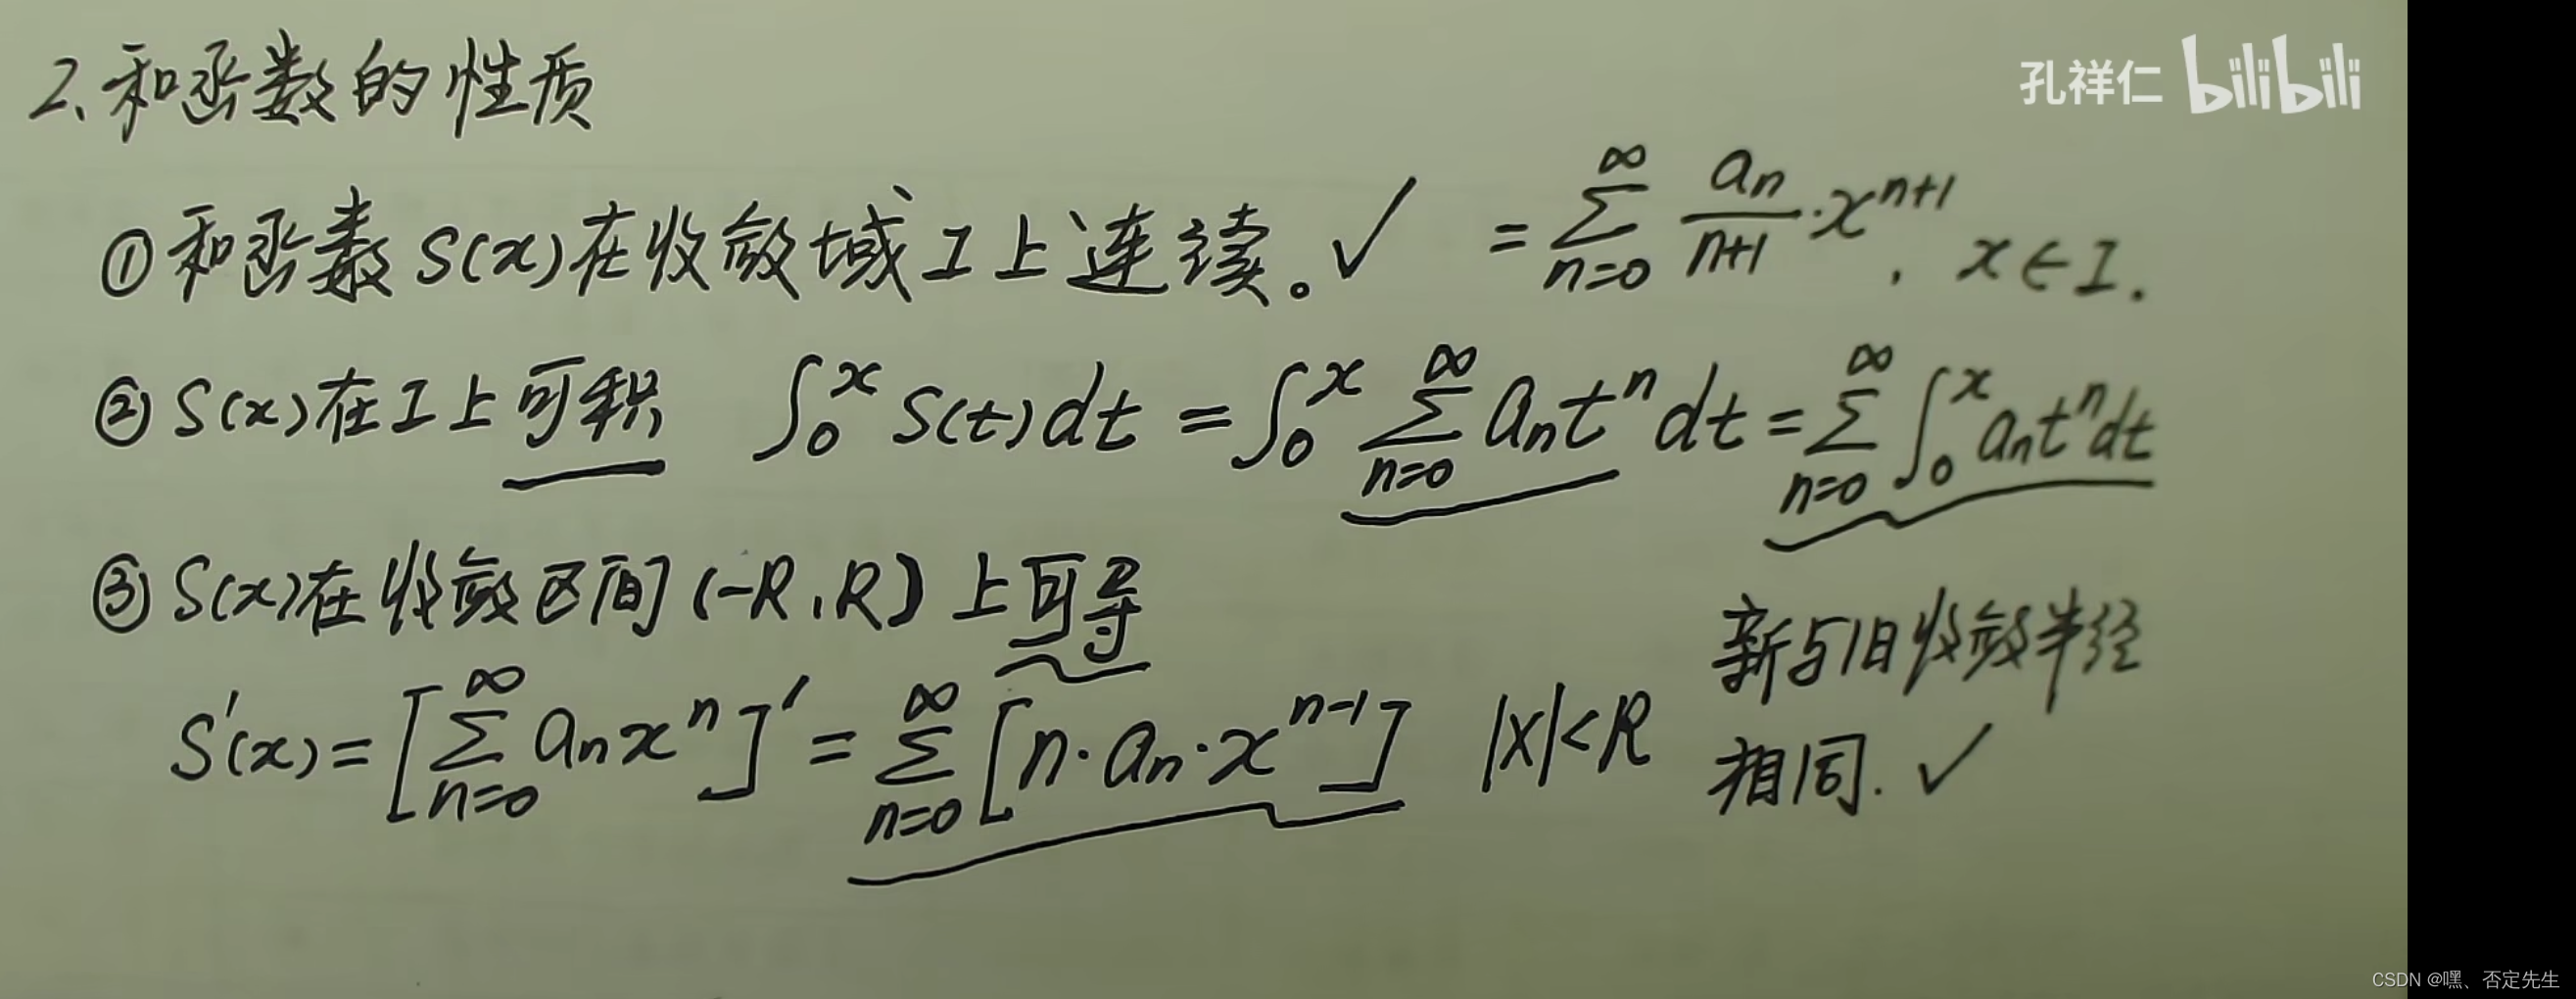 2、和函数的性质
孔祥仁 bilibili
①和函数 S(x)在收敛域 I 上连续。✓
= ∑_{n=0}^{∞} \frac{a_n}{n+1}·x^{n+1}, x∈I.
②S(x)在I上可积 ∫_0^x S(t)dt = ∫_0^x ∑_{n=0}^{∞} a_n t^n dt = ∑_{n=0}^{∞} ∫_0^x a_n t^n dt
③S(x)在收敛区间(-R,R)上可导
S'(x) = [∑_{n=0}^{∞} a_n x^n]' = ∑_{n=0}^{∞} [n·a_n·x^{n-1}] |x|<R
新与旧收敛半径
相同. ✓
CSDN @嘿、否定先生